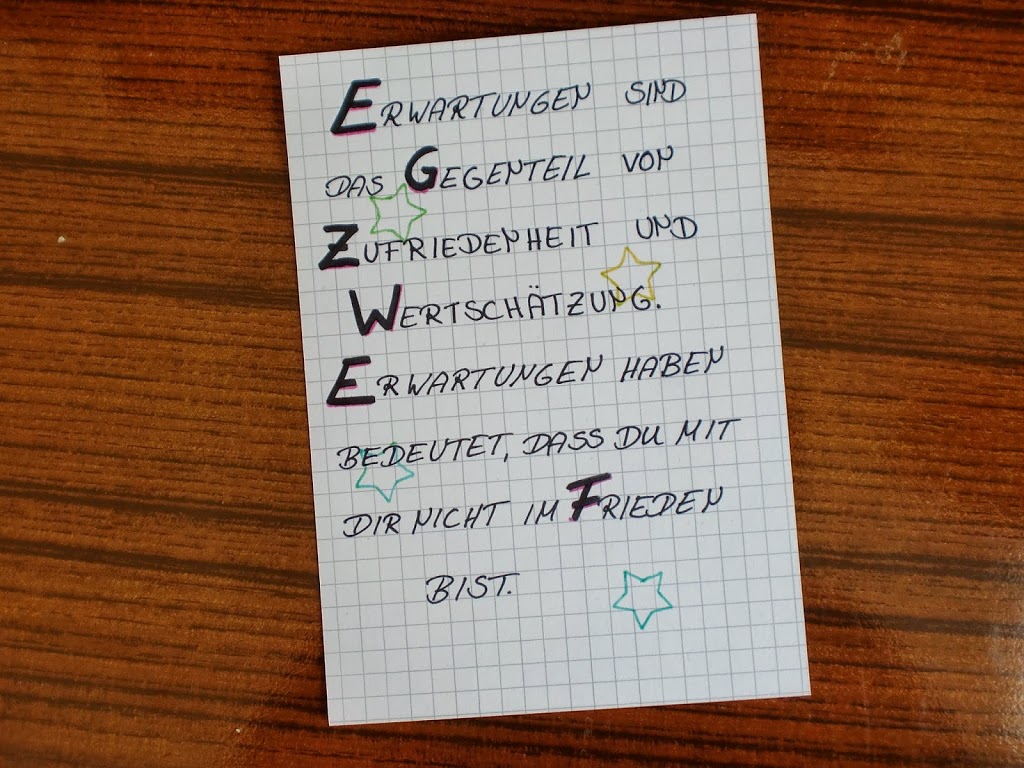 ERWARTUNGEN SIND
DAS GEGENTEIL VON
ZUFRIEDENHEIT UND
WERTSCHÄTZUNG.
ERWARTUNGEN HABEN
BEDEUTET, DASS DU MIT
DIR NICHT IM FRIEDEN
BIST.